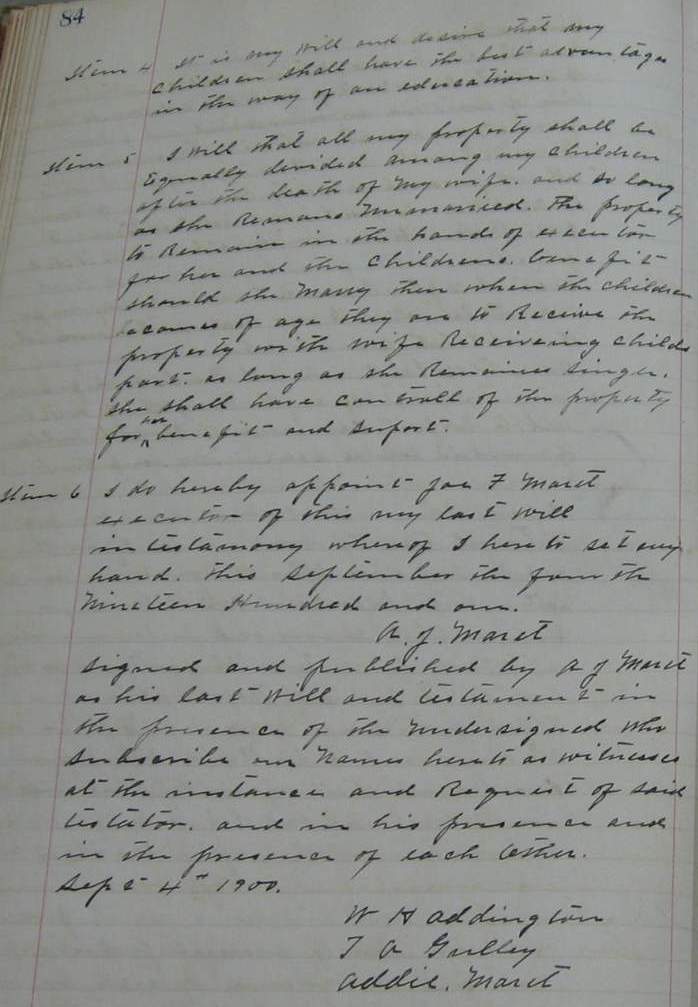 84
Item 4 It is my will and desire that my
children shall have the best advantages
in the way of an education.
Item 5 I will that all my property shall be
Equally devided among my children
after the death of my wife. and so long
as she Remans Unmarried. The property
to Remain in the hands of executor
for her and the childrens. benefit
should she Marry then when the children
ecomes of age they are to Receive the
property with wife Receiveing childs
part. as long as she Remaines singer.
she shall have controll of the property
for her benefit and suport.
Item 6 I do hereby appoint Joe F Maret
executor of this my last will
in testamony whereof I hereto set my
hand. this September the fourth
Nineteen Hundred and one.
A. J. Maret
signed and published by A J Maret
as his last will and testament in
the presence of the undersigned who
subscribe our Names hereto as witnesses
at the instance and Request of said
testator. and in his presence and
in the presence of each other.
Sept 4th 1900.
W H Addington
T A Gulley
Addie. Maret